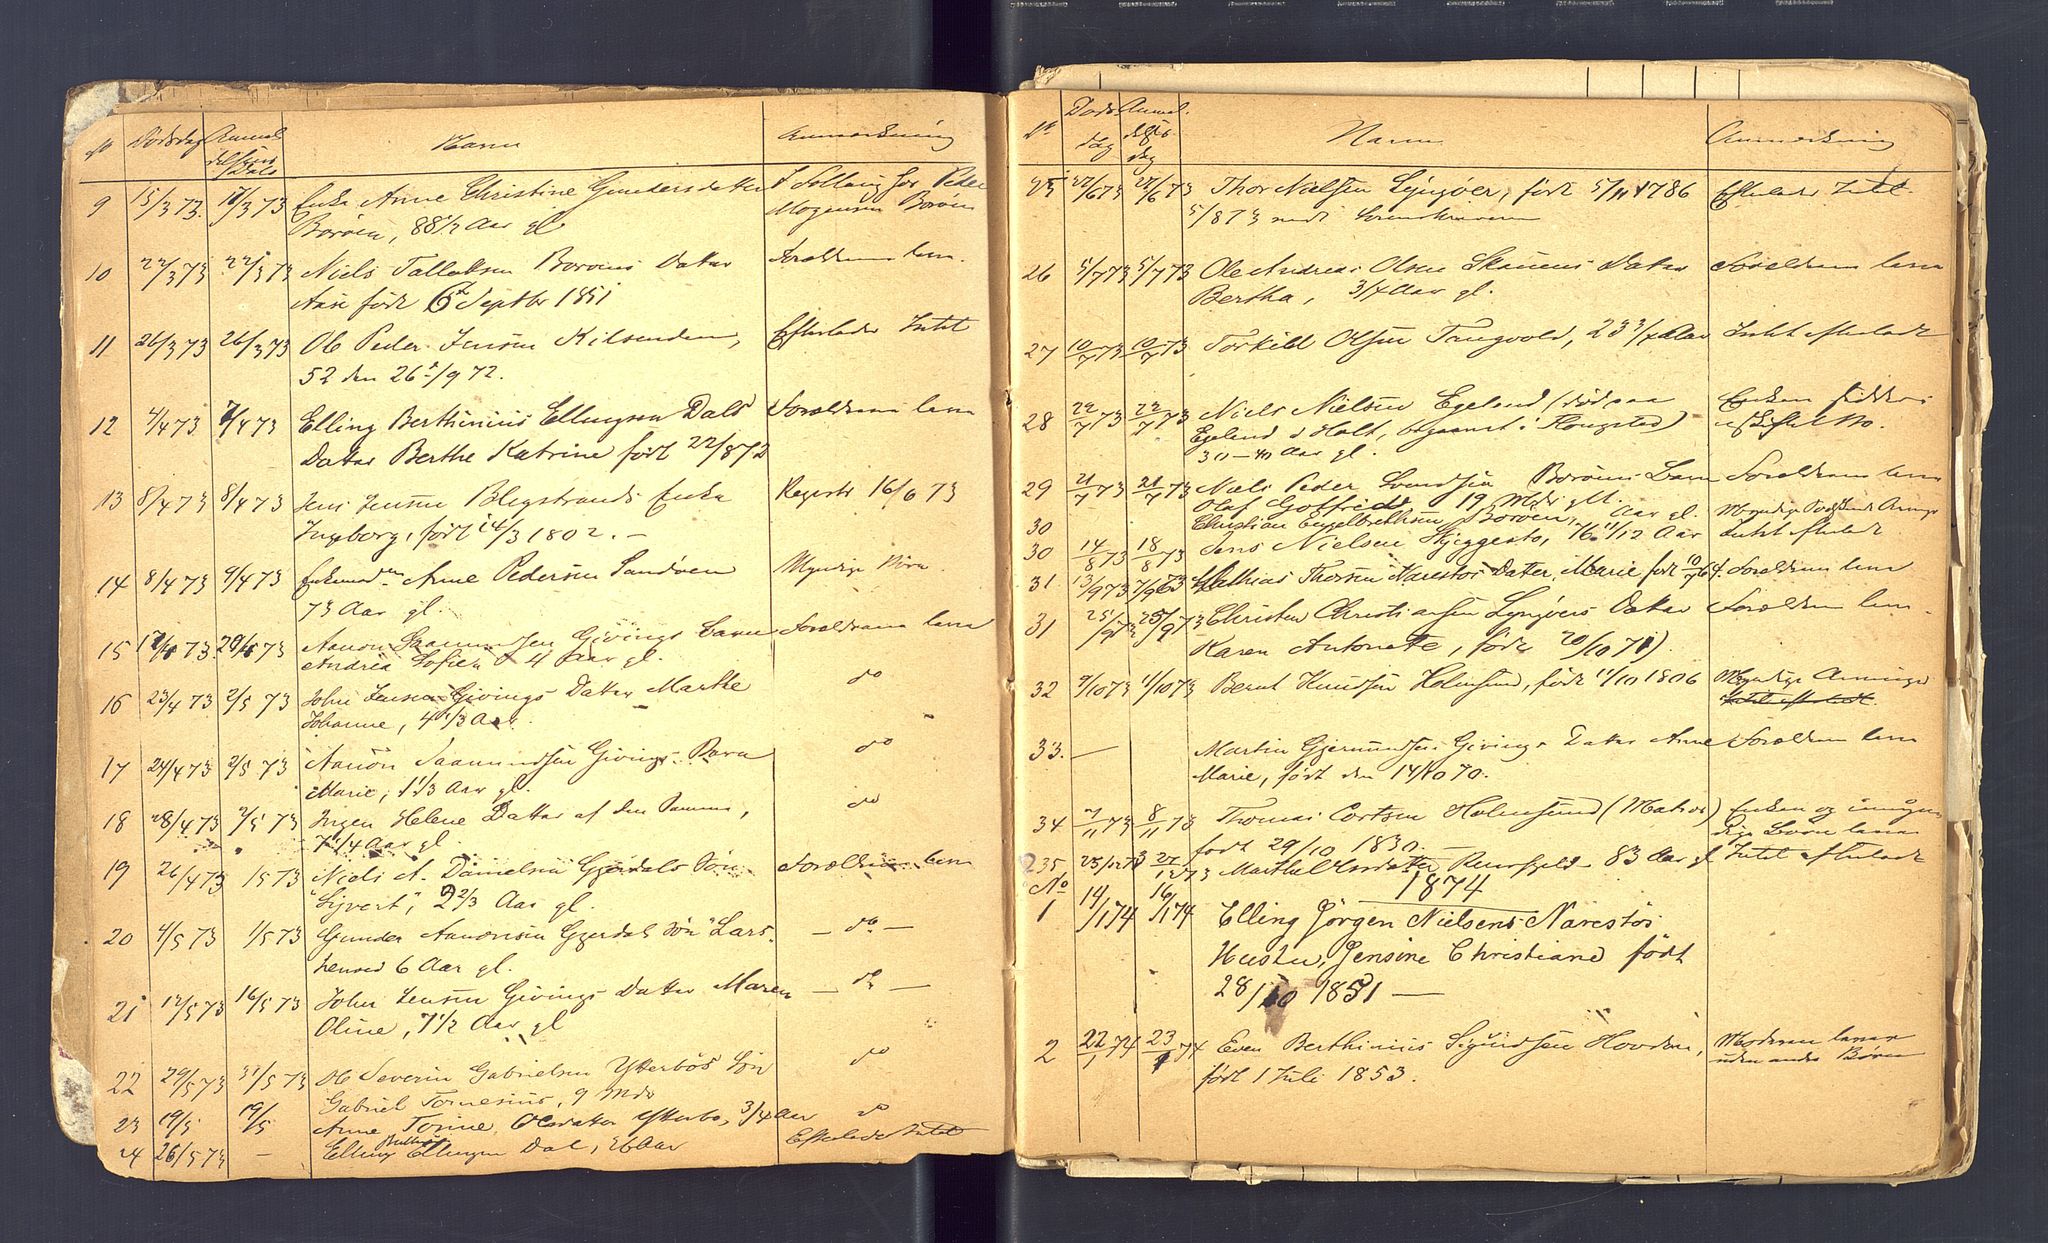 No Dödsdag Anmeldelsens Dato Navn Anmærkning
9 15/3 73. 17/3 73 Enke Anne Christine Gundersdatter
Borøen, 88 1/2 Aar gl.
Peder
Mogensen Borøen
10 22/3 73 22/3 73 Niels Tallaksen Borøens Datter Forældrene leve.
Aase født 6te Septbr 1851
11 26/3 73 26/3 73 Ole Peder Jensen Kilsenden, Efterlader Intet
52 den 26/9 72.
12 4/4 73 7/4 73 Elling Berthinius Ellingsen Dals Forældrene leve
Datter Berthe Katrine født 22/8 72
13 8/4 73 8/4 73 Jens Jensen Blegstrands Enke Registr 16/6 73
Ingeborg, født 14/3 1802. —
14 8/4 73 9/4 73 Enkemaden Anne Pedersen Sandøen Myndige Börn
73 Aar gl.
15 73. 73 Aanon Saamundsen Givings Barn Forældrene leve
Andrea Sofie 4 Aar gl.
16 23/4 73 2/5 73 John Jensen Givings Datter Marthe do
Johanne, 4 1/3 Aar.
17 24/4 73 2/5 73 Aanon Saamundsen Givings Barn do
Marie, 1 1/3 Aar gl.
18 28/4 73 2/5 73 Inger Helene Datter af den Samme, do
7 1/4 Aar gl.
19 26/4 73 1 5 73 Niels A. Danielsen Gjerdals Sön Forældrene leve
"Sijvert", 2 2/3 Aar gl.
20 4/5 73 1/5 73 Gunder Aanonsen Gjerdal Sön "Lars — do —
6 Aar gl.
21 12/5 73 16/5 73 John Jensen Givings Datter Maren — do —
Oline, 7 1/2 Aar gl
22 29/5 73 31/5 73 Ole Severin Gabrielsen Ytterbös Sön do
Gabriel Tornesius, 9 Mdr
23 19/5 19/5 Anne Torine Olsdatter Ytterbö, 3/4 Aar do
24 26/5 73 — Elling Ellingsen Dal, 26 Aar Efterlader Intet
No Dødsdag Anmeldelsesdag Navn Anmærkning
25 22/6 73 22/6 73 Thor Nielsen Lyngöer, født 5/11 1786 Efterlader Intet.
5/8 73 medt Sorenskriveren
26 5/7 73 5/7 73 Ole Andreas Olsen Skauens Datter Forældrene leve
Bertha, 3/4 Aar gl.
27 10/7 73 10/7 73 Torkild Olsen Tangvold, 23 3/4 Aar Intet efterladt
28 22/7 73 22/7 73 Niels Nielsen Egeland (død paa Enken sidder
Egeland i Holt, begravet i Flougstad) i uskiftet Bo.
30–40 Aar gl.
29 21/7 73 21/7 73 Niels Peder Borøens Barn Forældrene leve
Olaf Gotfried 19 Mdr glt.
30 Christian Engelbrethsen Borøen, Aar gl. Myndige Arvinger
30 14/8 73 18/8 73 Jens Nielsen Skjeggestø, 16 11/12 Aar Intet efterladt
31 13/9 73 Mathias Thorsen Narestøs Datter, Marie født 10/7 64. Forældrene leve
31 25/9 73 25/9 73 Christen Christiansen Lyngøers Datter Forældrene leve.
Karen Antonette, født 20/10 71)
32 9/10 73 11/10 73 Bernt Knudsen Holmsund, født 11/10 1806 Myndige Arvinger
Intet efterladt.
33. — Martin Gjermundsens Givings Datter Anne Forældrene leve
Marie, født den 14/10 70.
34 7/11 73 8/11 73 Thomas Cortsen Holmsund (Matros) Enken og umyndige
født 29/10 1830. — Børn leve
35 25/12 73 27/12 73 Marthe Olsdatter 83 Aar gl Intet efterladt
No 1874
1 14/1 74 16/1 74 Elling Jörgen Nielsens Narestös
Hustru, Jensine Christiane født
28/10 1851 —
2 22/1 74 23/1 74 Even Berthinius Sigundsen Hovden, Moderen lever
født 1 Juli 1853. uden andre Børn